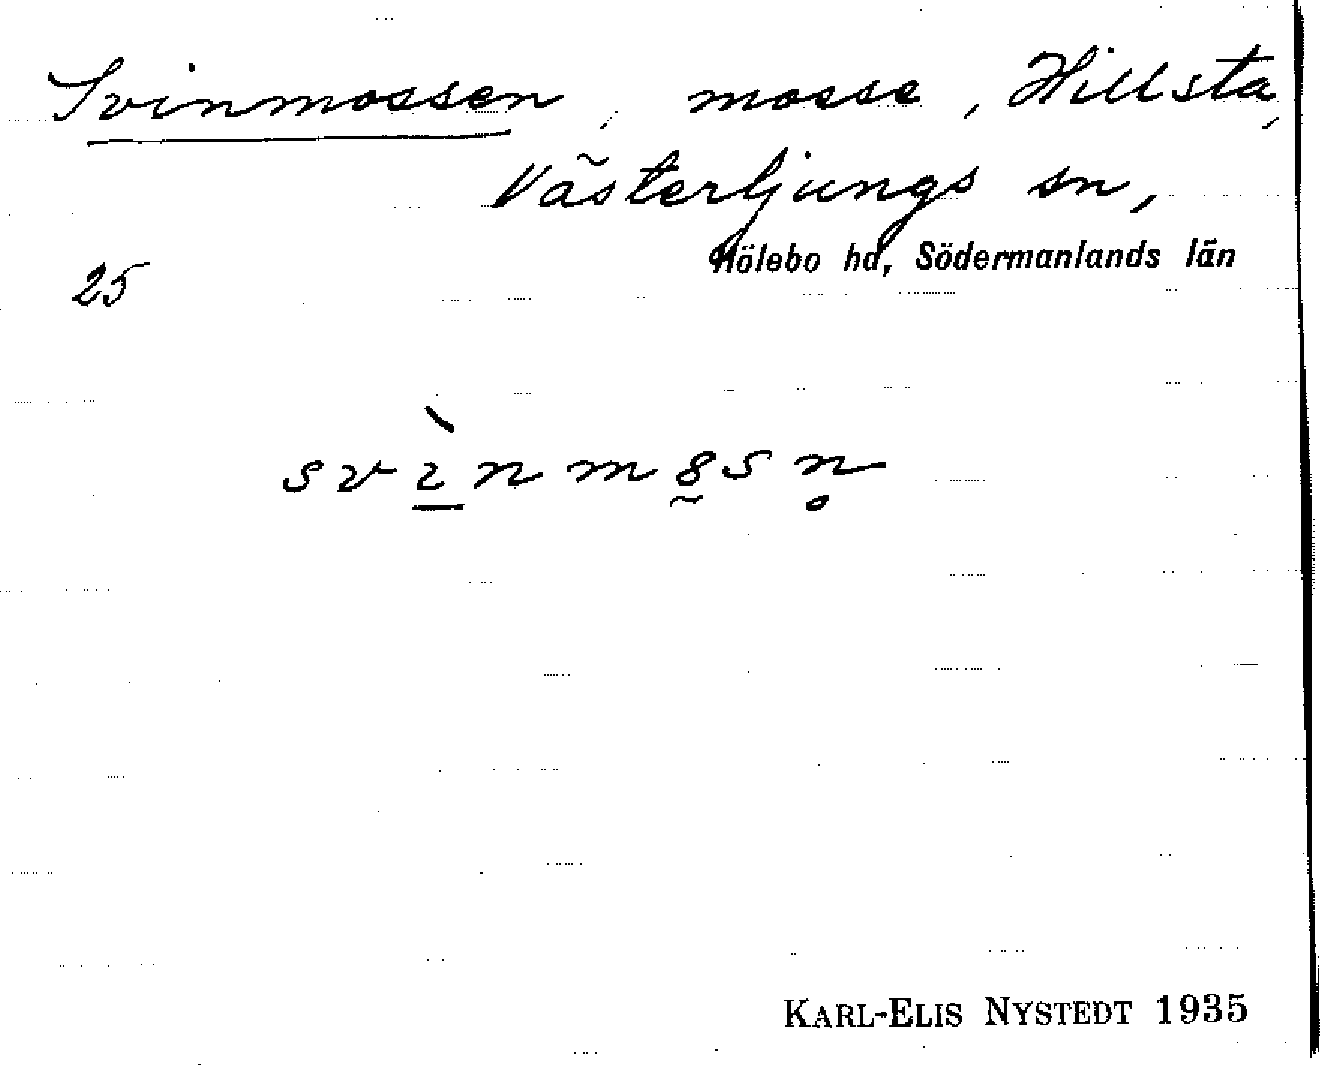 Svinmossen, mosse, Hillsta,
Västerljungs sn,
Hölebo hd, Södermanlands län
25
svɩ̱̀nm8̰sn̥
KARL-ELIS NYSTEDT 1935